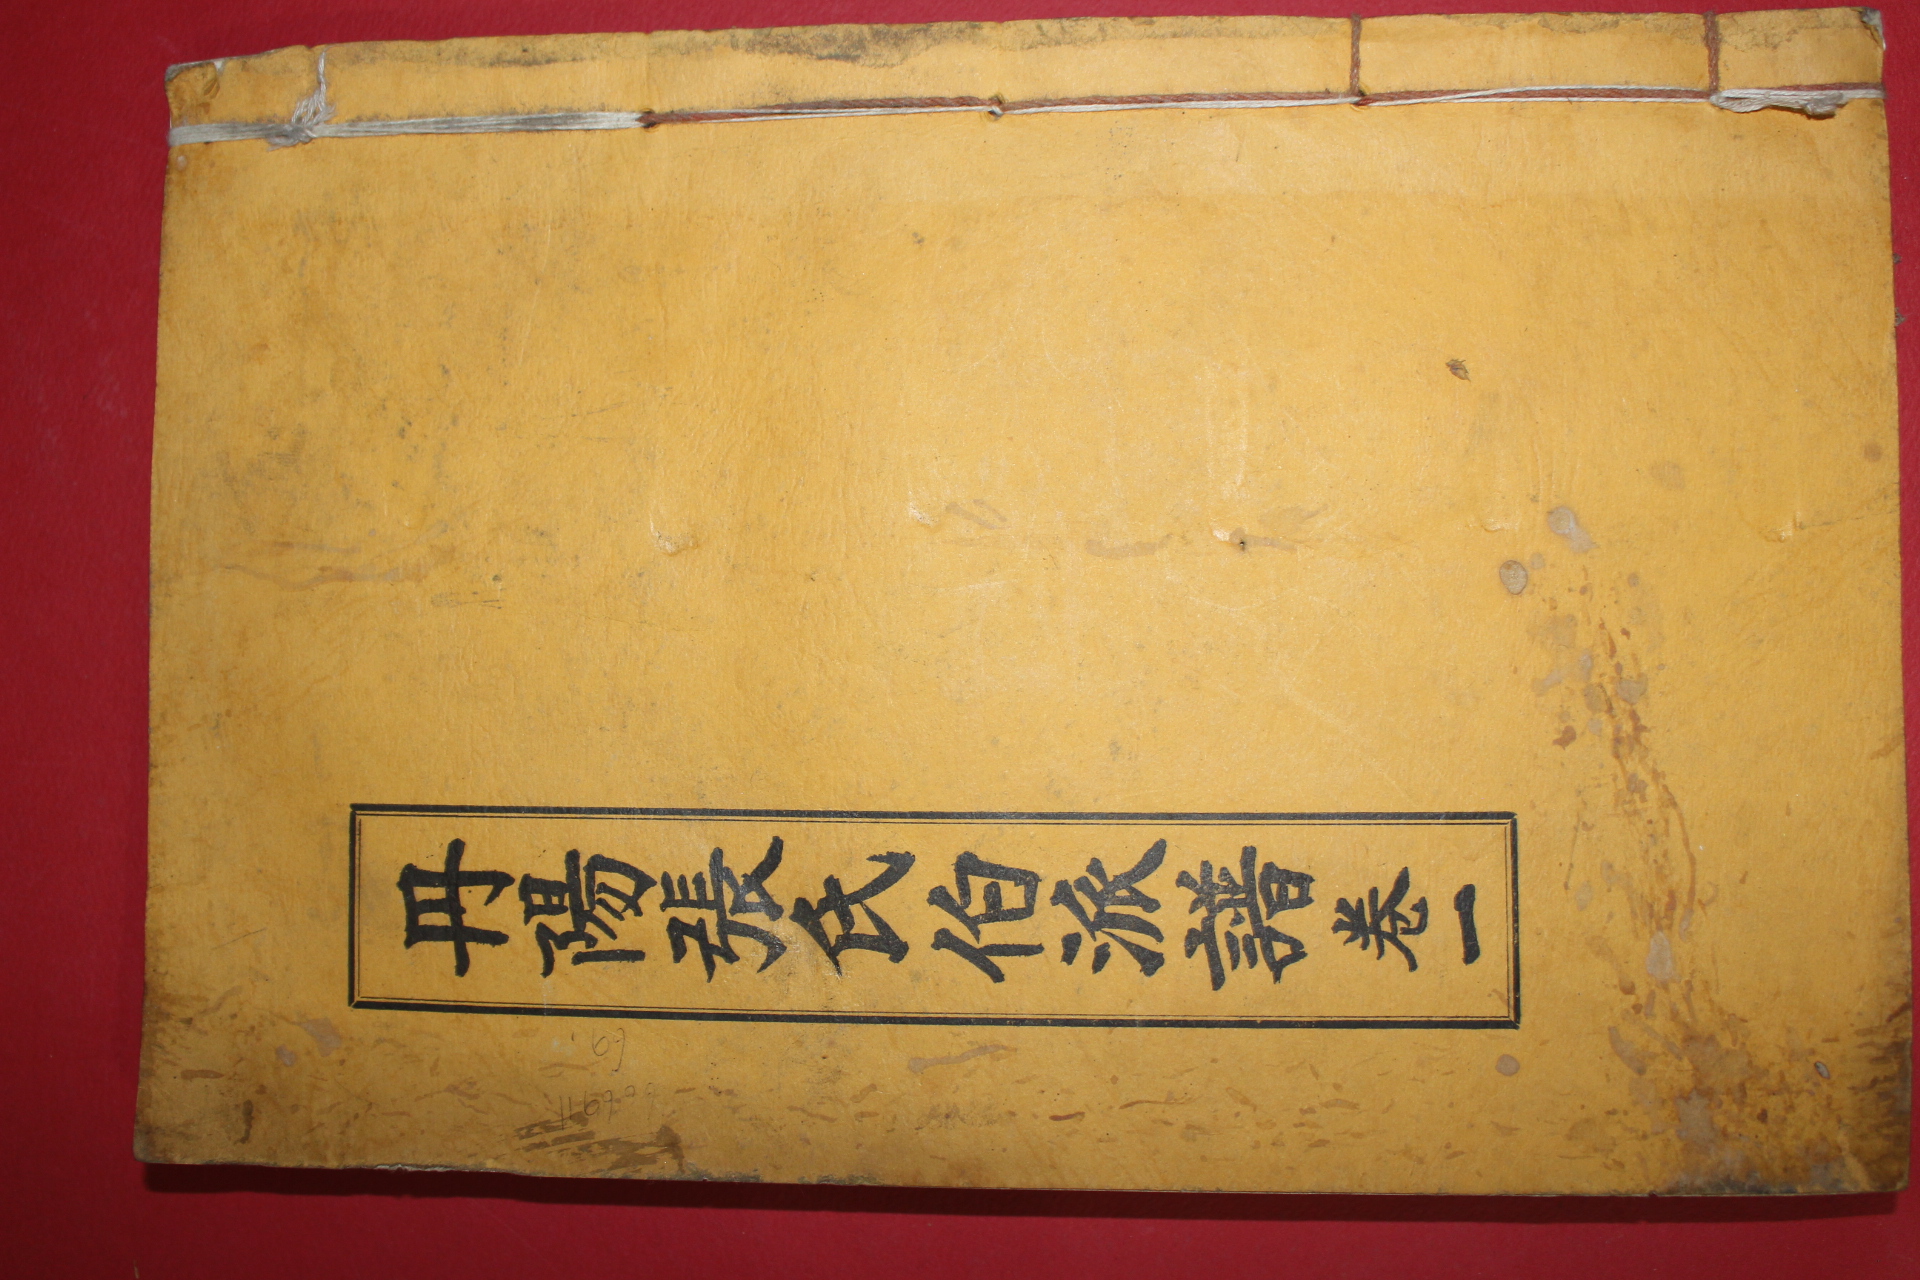 丹陽張氏伯派譜卷一